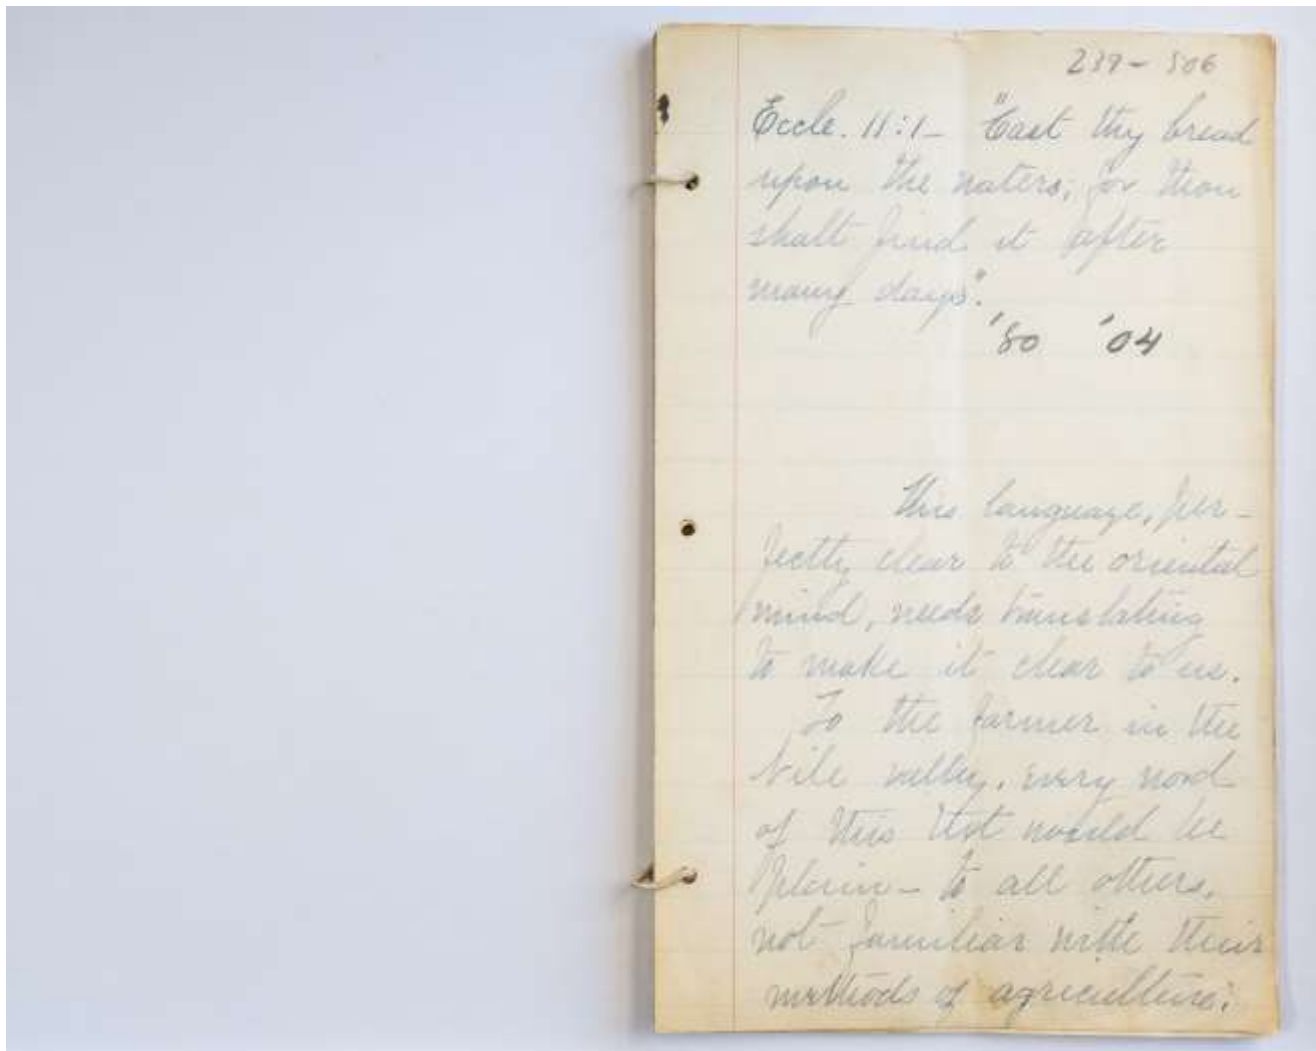 239 - 506
Eccle. 11:1 - "Cast thy bread
upon the waters; for thou
shalt find it after
many days".
'80 '04
This language, per-
fectly clear to the oriental
mind, needs translating
to make it clear to us.
To the farmer in the
Nile valley, every word
of this text would be
plain - to all others,
not familiar with their
methods of agriculture;